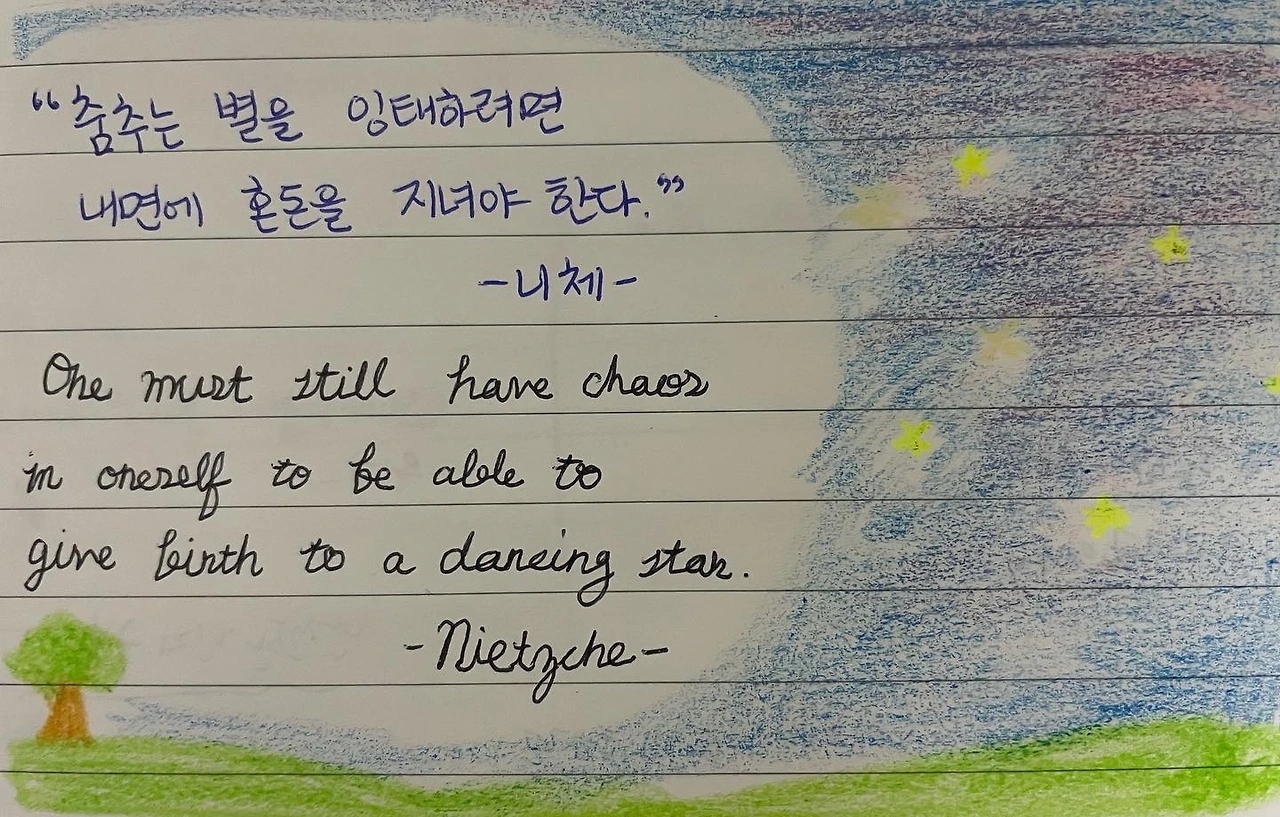 “춤추는 별을 잉태하려면
내면에 혼돈을 지녀야 한다.”
-니체-
One must still have chaos
in oneself to be able to
give birth to a dancing star.
-Nietzche-